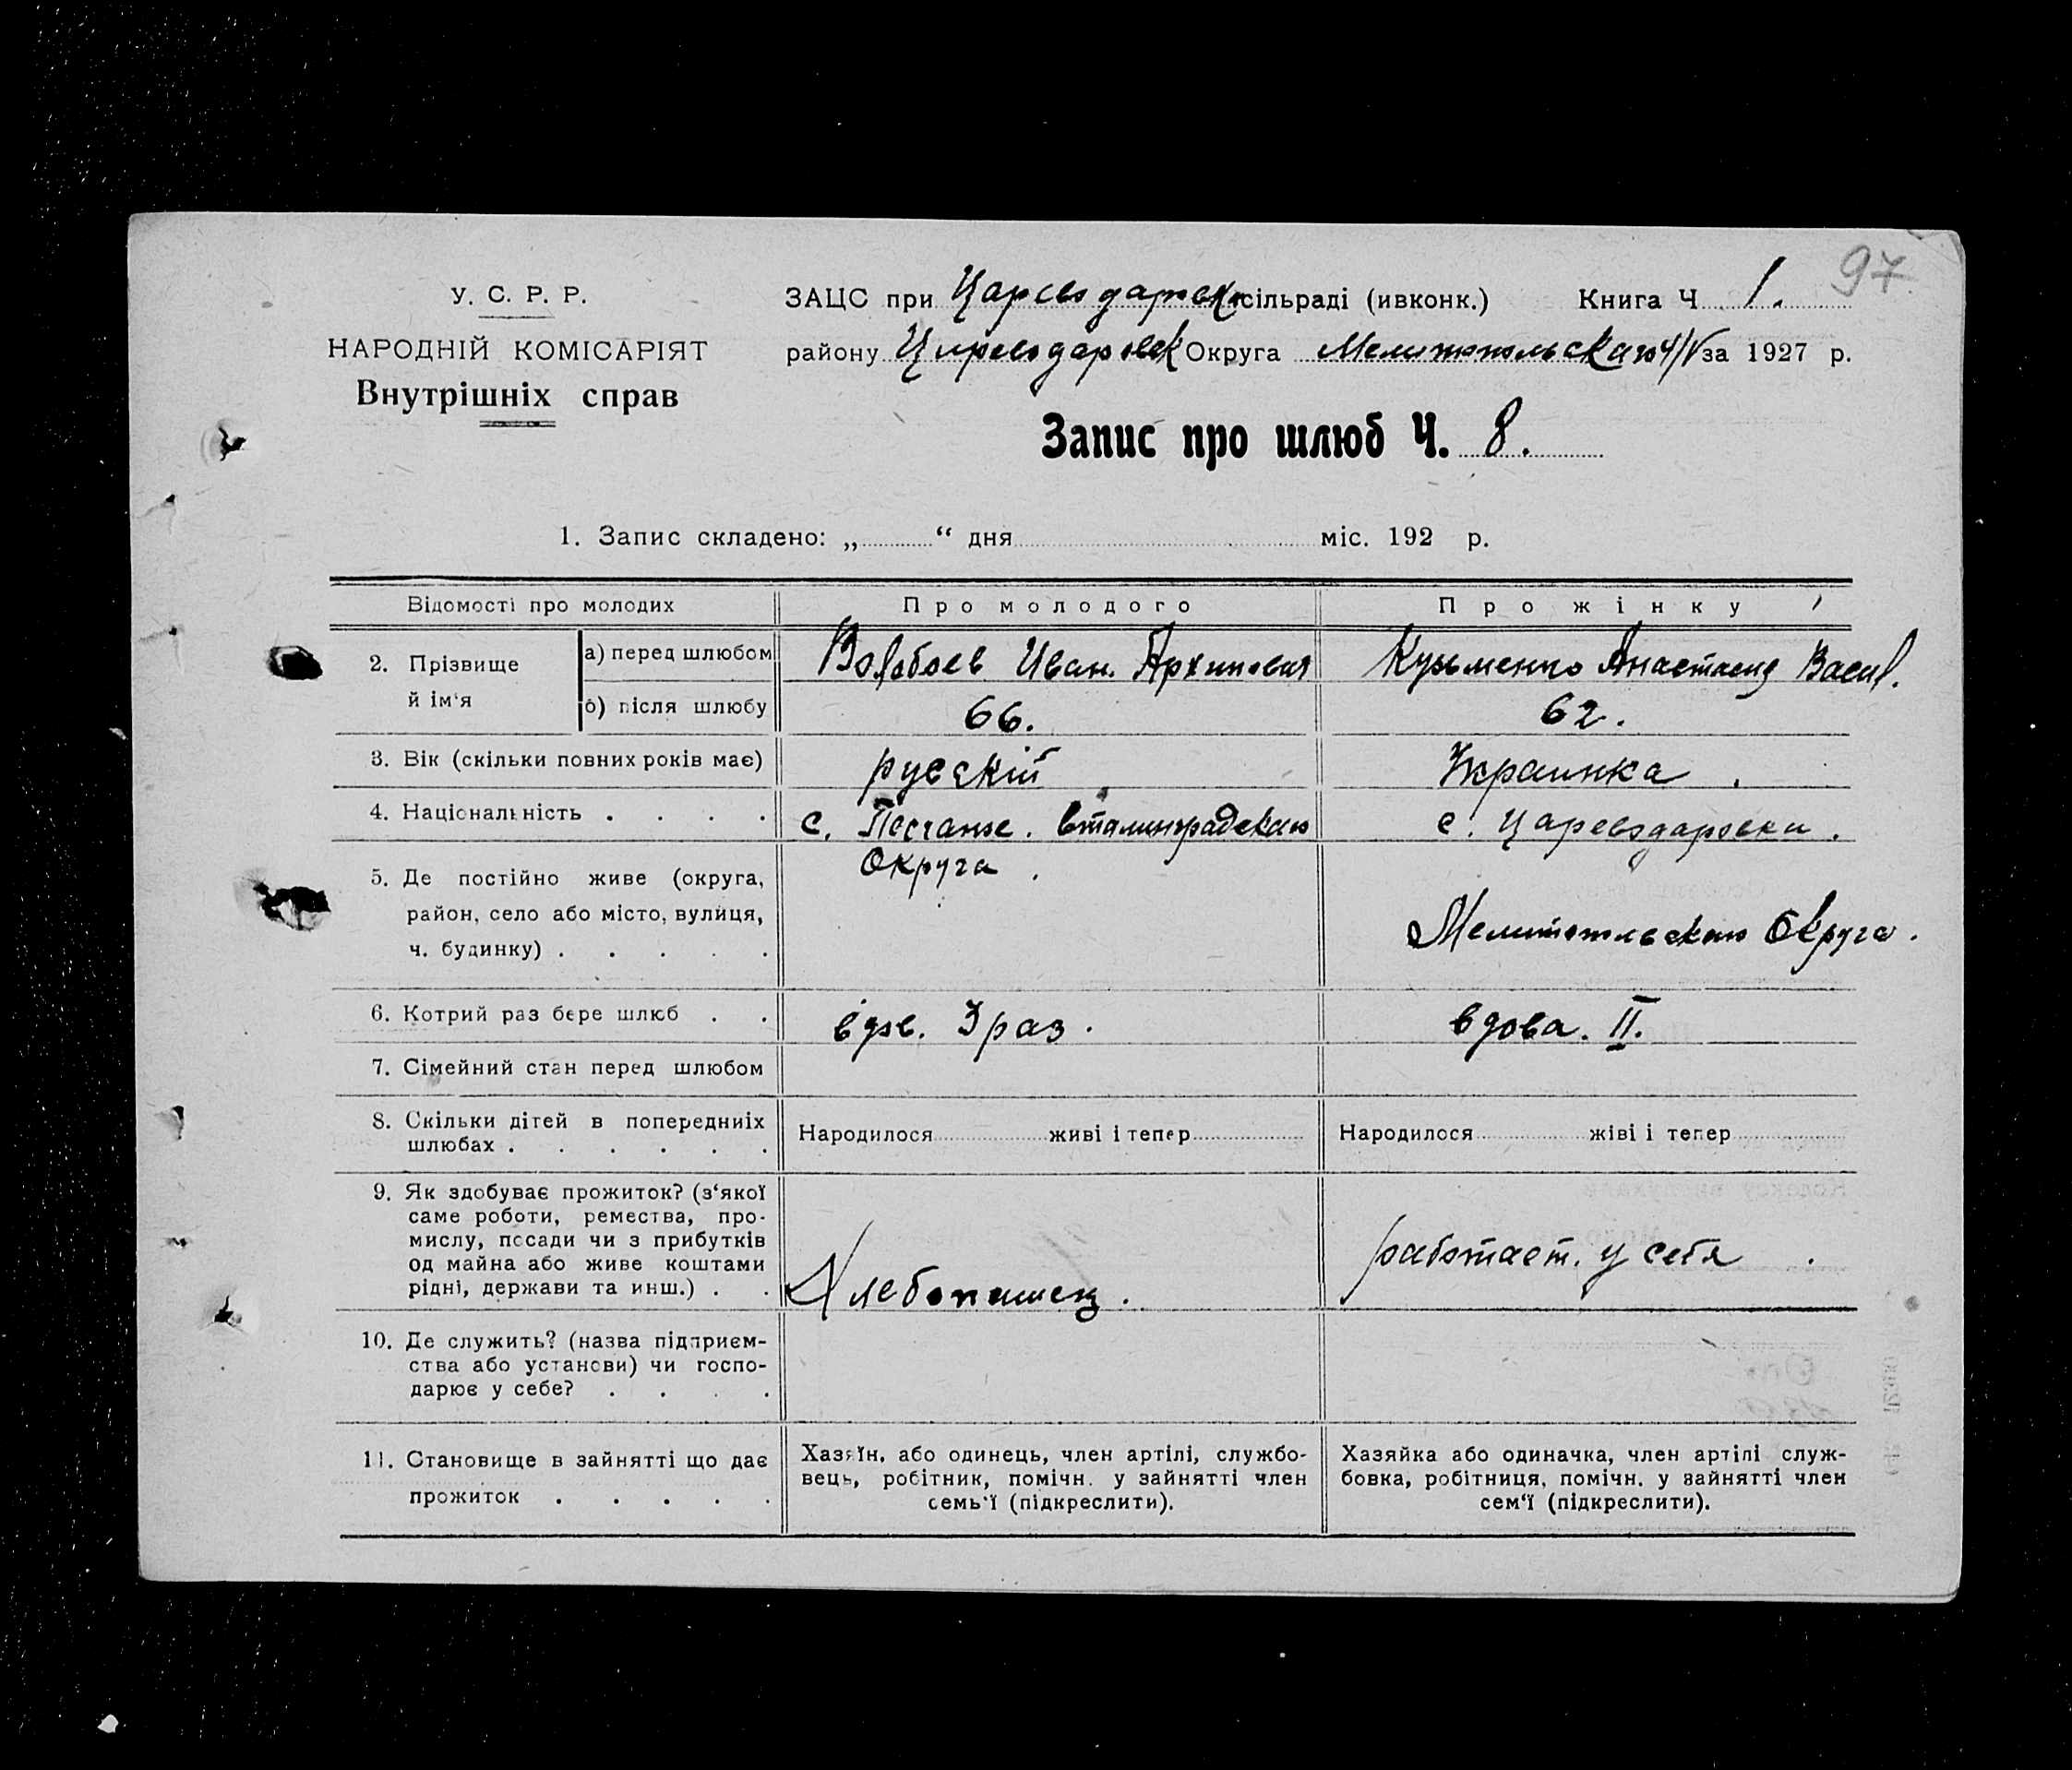 97
У. С. Р. Р.
НАРОДНІЙ КОМІСАРІЯТ
Внутрішніх справ
ЗАЦС при сільраді (ивконк.) Книга Ч 1.
району Округа Мелитопольскаго 4/V за 1927 р.
Запис про шлюб Ч. 8.
1. Запис складено: „ “ дня міс. 192 р.
Відомості про молодих Про молодого Про жінку
2. Прізвище й ім'я
а) перед шлюбом Иван. Архипович Кузьменко Анастасия Васил.
б) після шлюбу 66. 62.
3. Вік (скільки повних років має) русскій Украинка.
4. Національність . . . . с. Песчаное. Сталинградскаго с. Царевдаровки.
Округа.
5. Де постійно живе (округа,
район, село або місто, вулиця,
ч. будинку) . . . . .
Мелитопольскаго Округа.
6. Котрий раз бере шлюб . . вдов. 3 раз. вдова. II.
7. Сімейний стан перед шлюбом
8. Скільки дітей в попередніх
шлюбах . . . . . .
Народилося живі і тепер Народилося жіві і тепер
9. Як здобуває прожиток? (з'якої
саме роботи, ремества, про-
мислу, посади чи з прибутків
од майна або живе коштами
рідні, держави та инш.) . .
Хлебопашец. работает. у себя.
10. Де служить? (назва підприєм-
ства або установи) чи госпо-
дарює у себе? . . . .
11. Становище в зайнятті що дає
прожиток . . . . .
Хазяїн, або одинець, член артілі, службо-
вець, робітник, помічн. у зайнятті член
семь'ї (підкреслити).
Хазяйка або одиначка, член артілі служ-
бовка, робітниця, помічн. у зайнятті член
сем'ї (підкреслити).